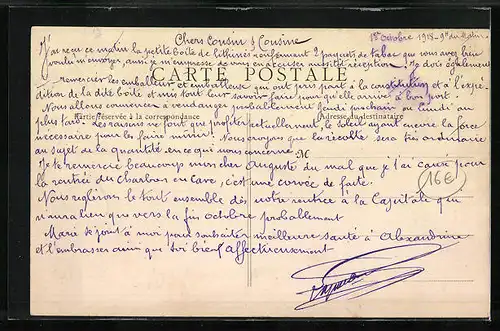 Chers Cousin & Cousine
1er Octobre 1918 - 9h du Matin
J'ai reçu ce matin la petite boîte de lithinés renfermant 2 paquets de tabac que vous avez bien
voulu m'envoyer, aussi je m'empresse de vous en accuser réception. Je dois également
CARTE POSTALE
remercier les emballeurs et emballeuses qui ont pris part à la constitution et à l'expé-
dition de la dite boîte et vous tout leur savoir faire pour qu'elle arrive à bon port.
Nous allons commencer à vendanger probablement Jeudi prochain ou lundi au
Partie réservée à la correspondance
Adresse du destinataire
plus tard. Les raisins ne font que profiter actuellement, le soleil ayant encore la force
nécessaire pour les faire mûrir. Nous croyons que la récolte sera très ordinaire
au sujet de la quantité en ce qui nous concerne.
M
Je te remercie beaucoup mon cher Auguste du mal que je t'ai causé pour
la rentrée du Charbon en Cave, c'est une corvée de faite.
16€
Nous règlerons le tout ensemble dès notre rentrée à la Capitale qui
n'aura lieu que vers la fin Octobre probablement
Marie se joint à moi pour souhaiter meilleure santé à Alexandrine
et t'embrasser ainsi que toi bien affectueusement